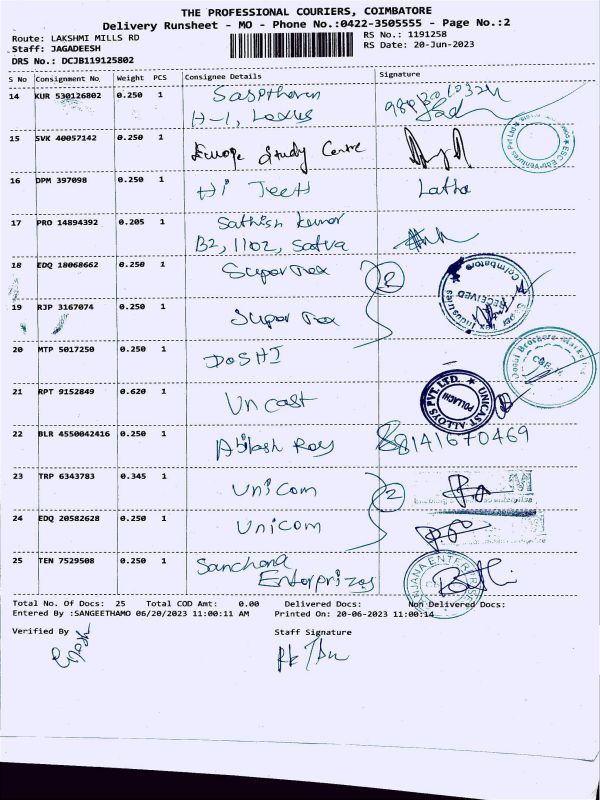 THE PROFESSIONAL COURIERS, COIMBATORE
Delivery Runsheet - MO - Phone No.:0422-3505555 - Page No.:2
Route: LAKSHMI MILLS RD
Staff: JAGADEESH
DRS No.: DCJB119125802
RS No.: 1191258
RS Date: 20-Jun-2023
S No Consignment No. Weight PCS Consignee Details Signature
14 KUR 530126802 0.250 1
H-1, Lexus
15 SVK 40057142 0.250 1 Europe Study Centre
16 DPM 397098 0.250 1 Hi Teeth Latha
17 PRO 14894392 0.205 1 Sathish kumar
B2, 1102, Satva
18 EDQ 18068662 0.250 1 Super Tex 2
19 RJP 3167074 0.250 1 Super Tex
RECEIVED
Coimbatore
20 MTP 5017250 0.250 1 DOSHI
21 RPT 9152849 0.620 1 Unicast
UNICAST ALLOYS PVT. LTD.
POLLACHI
22 BLR 4550042416 0.250 1 Abilash Roy 8141670469
23 TRP 6343783 0.345 1 Unicom 2
24 EDQ 20582628 0.250 1 Unicom
25 TEN 7529508 0.250 1 Sanchana
Enterprizes
Total No. Of Docs: 25 Total COD Amt: 0.00 Delivered Docs: Non Delivered Docs:
Entered By :SANGEETHAMO 06/20/2023 11:00:11 AM Printed On: 20-06-2023 11:00:14
Verified By Staff Signature